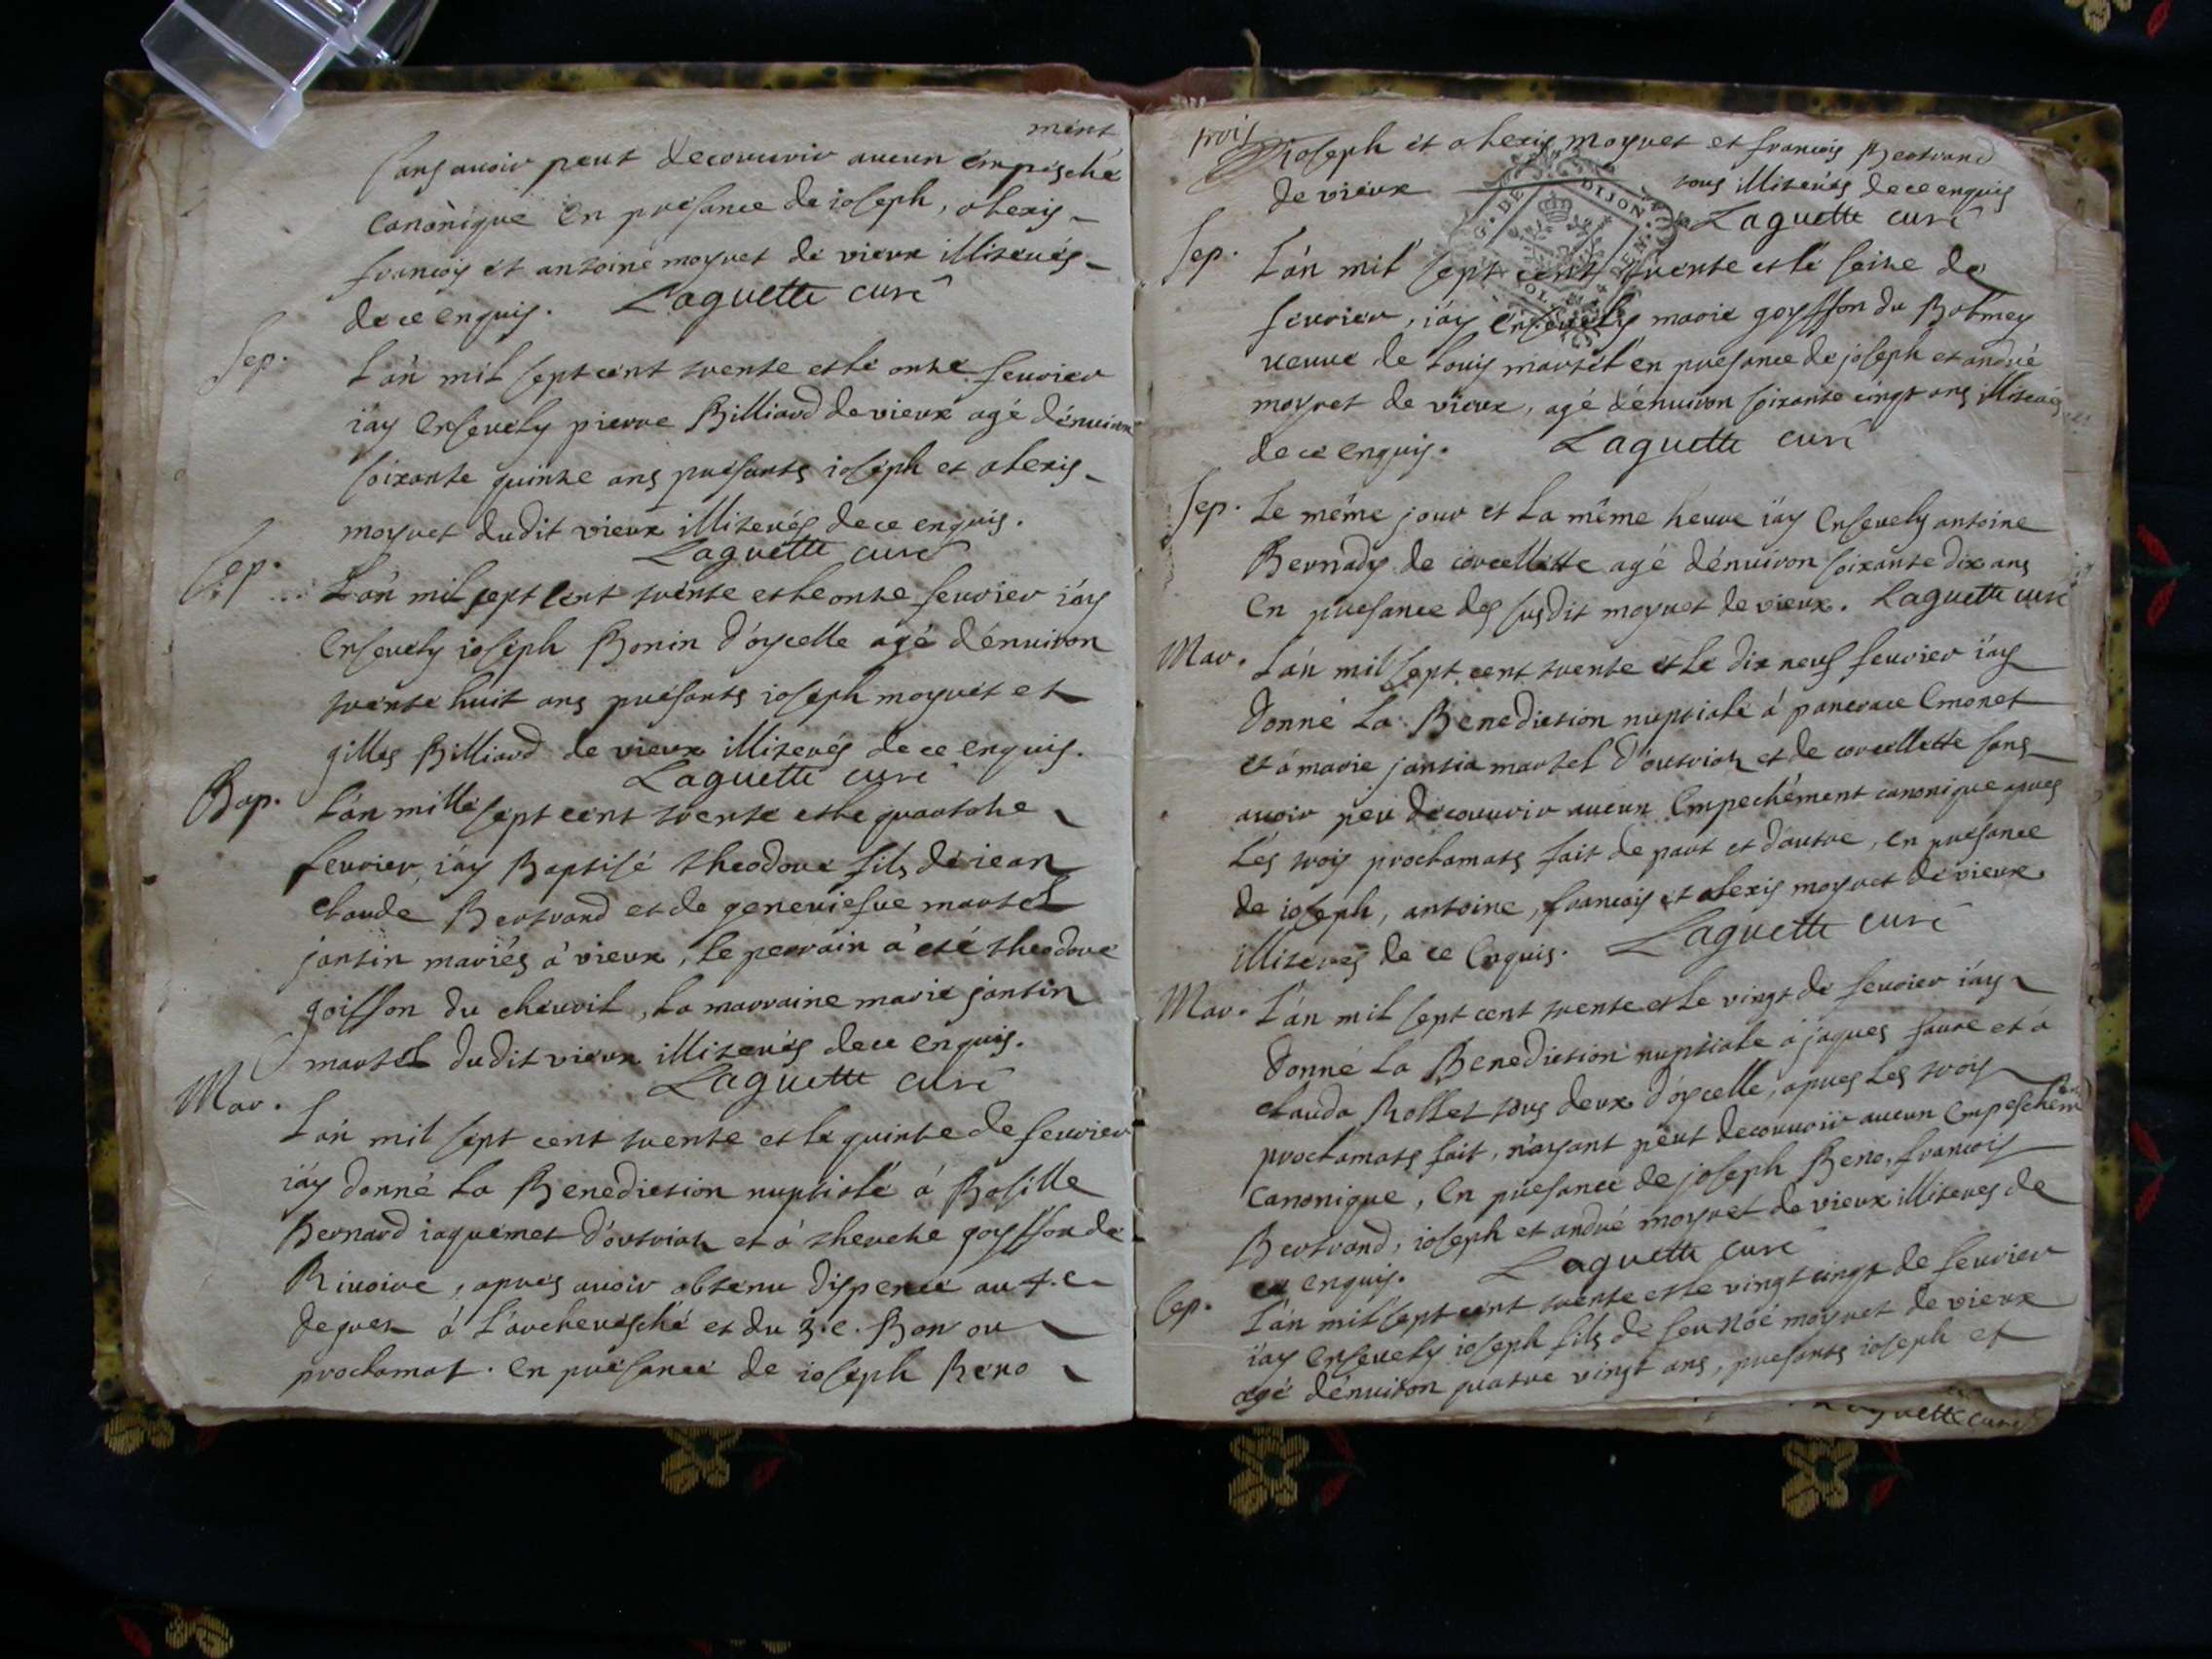 ment
sans avoir peut decouvrir aucun émpèsché
canònique en présance de ioseph, alexis
francois et antoine moynet de vieux illiterés
de ce enquis. Laguette curé
Sep.
L'an mil sept cent trente et le onze feuvrier
i'ay ensevely pierre Billiard de vieux agé d'enuiron
soixante quinze ans présants ioseph et alexis
moynet dudit vieux illiterés de ce enquis.
Laguette curé
Sep.
L'an mil sept cent trente et le onze feuvrier i'ay
ensevely ioseph Bonin d'oycelle agé d'enuiron
trente huit ans présants ioseph moynet et
gilles Billiard de vieux illiterés de ce enquis.
Laguette curé
Bap.
L'an mille sept cent trente et le quautohe
feuvrier, i'ay Baptisé theodore fils de iean
claude Bertrand et de geneviefue martel
jantin mariés à vieux, le parrain a eté theodore
goisson du cheuril, la marraine marie jantin
martel dudit vieux illiterés de ce enquis.
Laguette curé
Mar.
L'an mil sept cent trente et le quinze de feuvrier
i'ay donné la Benediction nuptiale à Basille
Bernard iaquemet d'outriah et à therehe goysson de
Rivoire, apres avoir obtenu dispence au 4.e
degrez à l'archevesché et du 3.e. Ban ou
proclamat. en présance de ioseph Reno
trois
ioseph et alexis moynet et francois Bertrand
de vieux tous illiterés de ce enquis
Laguette curé
G. DE DIJON
Sep.
L'an mil sept cent trente et le seize de
feuvrier, i'ay ensevely marie goysson du Botmey
veuve de Louis martel en présance de joseph et andre
moynet de vieux, agé d'enuiron soixante cinq ans illiterés
de ce enquis. Laguette curé
Sep.
Le même jour et la même heure i'ay ensevely antoine
Bernady de corcellette agé d'enuiron soixante dix ans
en présance des susdit moynet de vieux. Laguette curé
Mar.
L'an mil sept cent trente et le dix neuf feuvrier i'ay
donné la Benediction nuptiale à pancrace Emonet
et à marie jantin martel d'outriah et de corcellette sans
avoir peu decouvrir aucun empechement canonique apres
les trois proclamats fait de part et d'autre, en présance
de ioseph, antoine, francois et alexis moynet de vieux
illiterés de ce enquis. Laguette curé
Mar.
L'an mil sept cent trente et le vingt de feuvrier i'ay
donné la Benediction nuptiale à jaques favre et à
clauda Rollet tous deux d'oycelle, apres les trois
proclamats fait, n'ayant peut decouvrir aucun empeschem
canonique, en présance de joseph Reno, francois
Bertrand, ioseph et andré moynet de vieux illiterés de
ce enquis. Laguette curé
Sep.
L'an mil sept cent trente et le vingt cinq de feuvrier
i'ay ensevely ioseph fils de feu Noé moynet de vieux
agé d'enuiron quatre vingt ans, présants ioseph et
Laguette curé